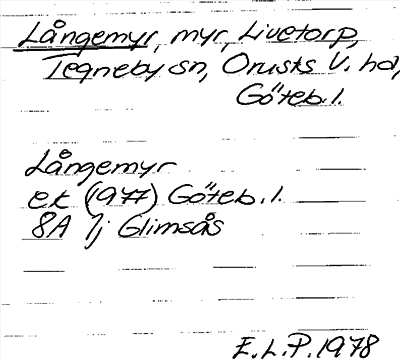 Långemyr, myr, Livetorp,
Tegneby sn, Orusts V. hd,
Göteb. l.
Långemyr
ek (1977) Göteb. l.
8A 7j Glimsås
E. L. P. 1978